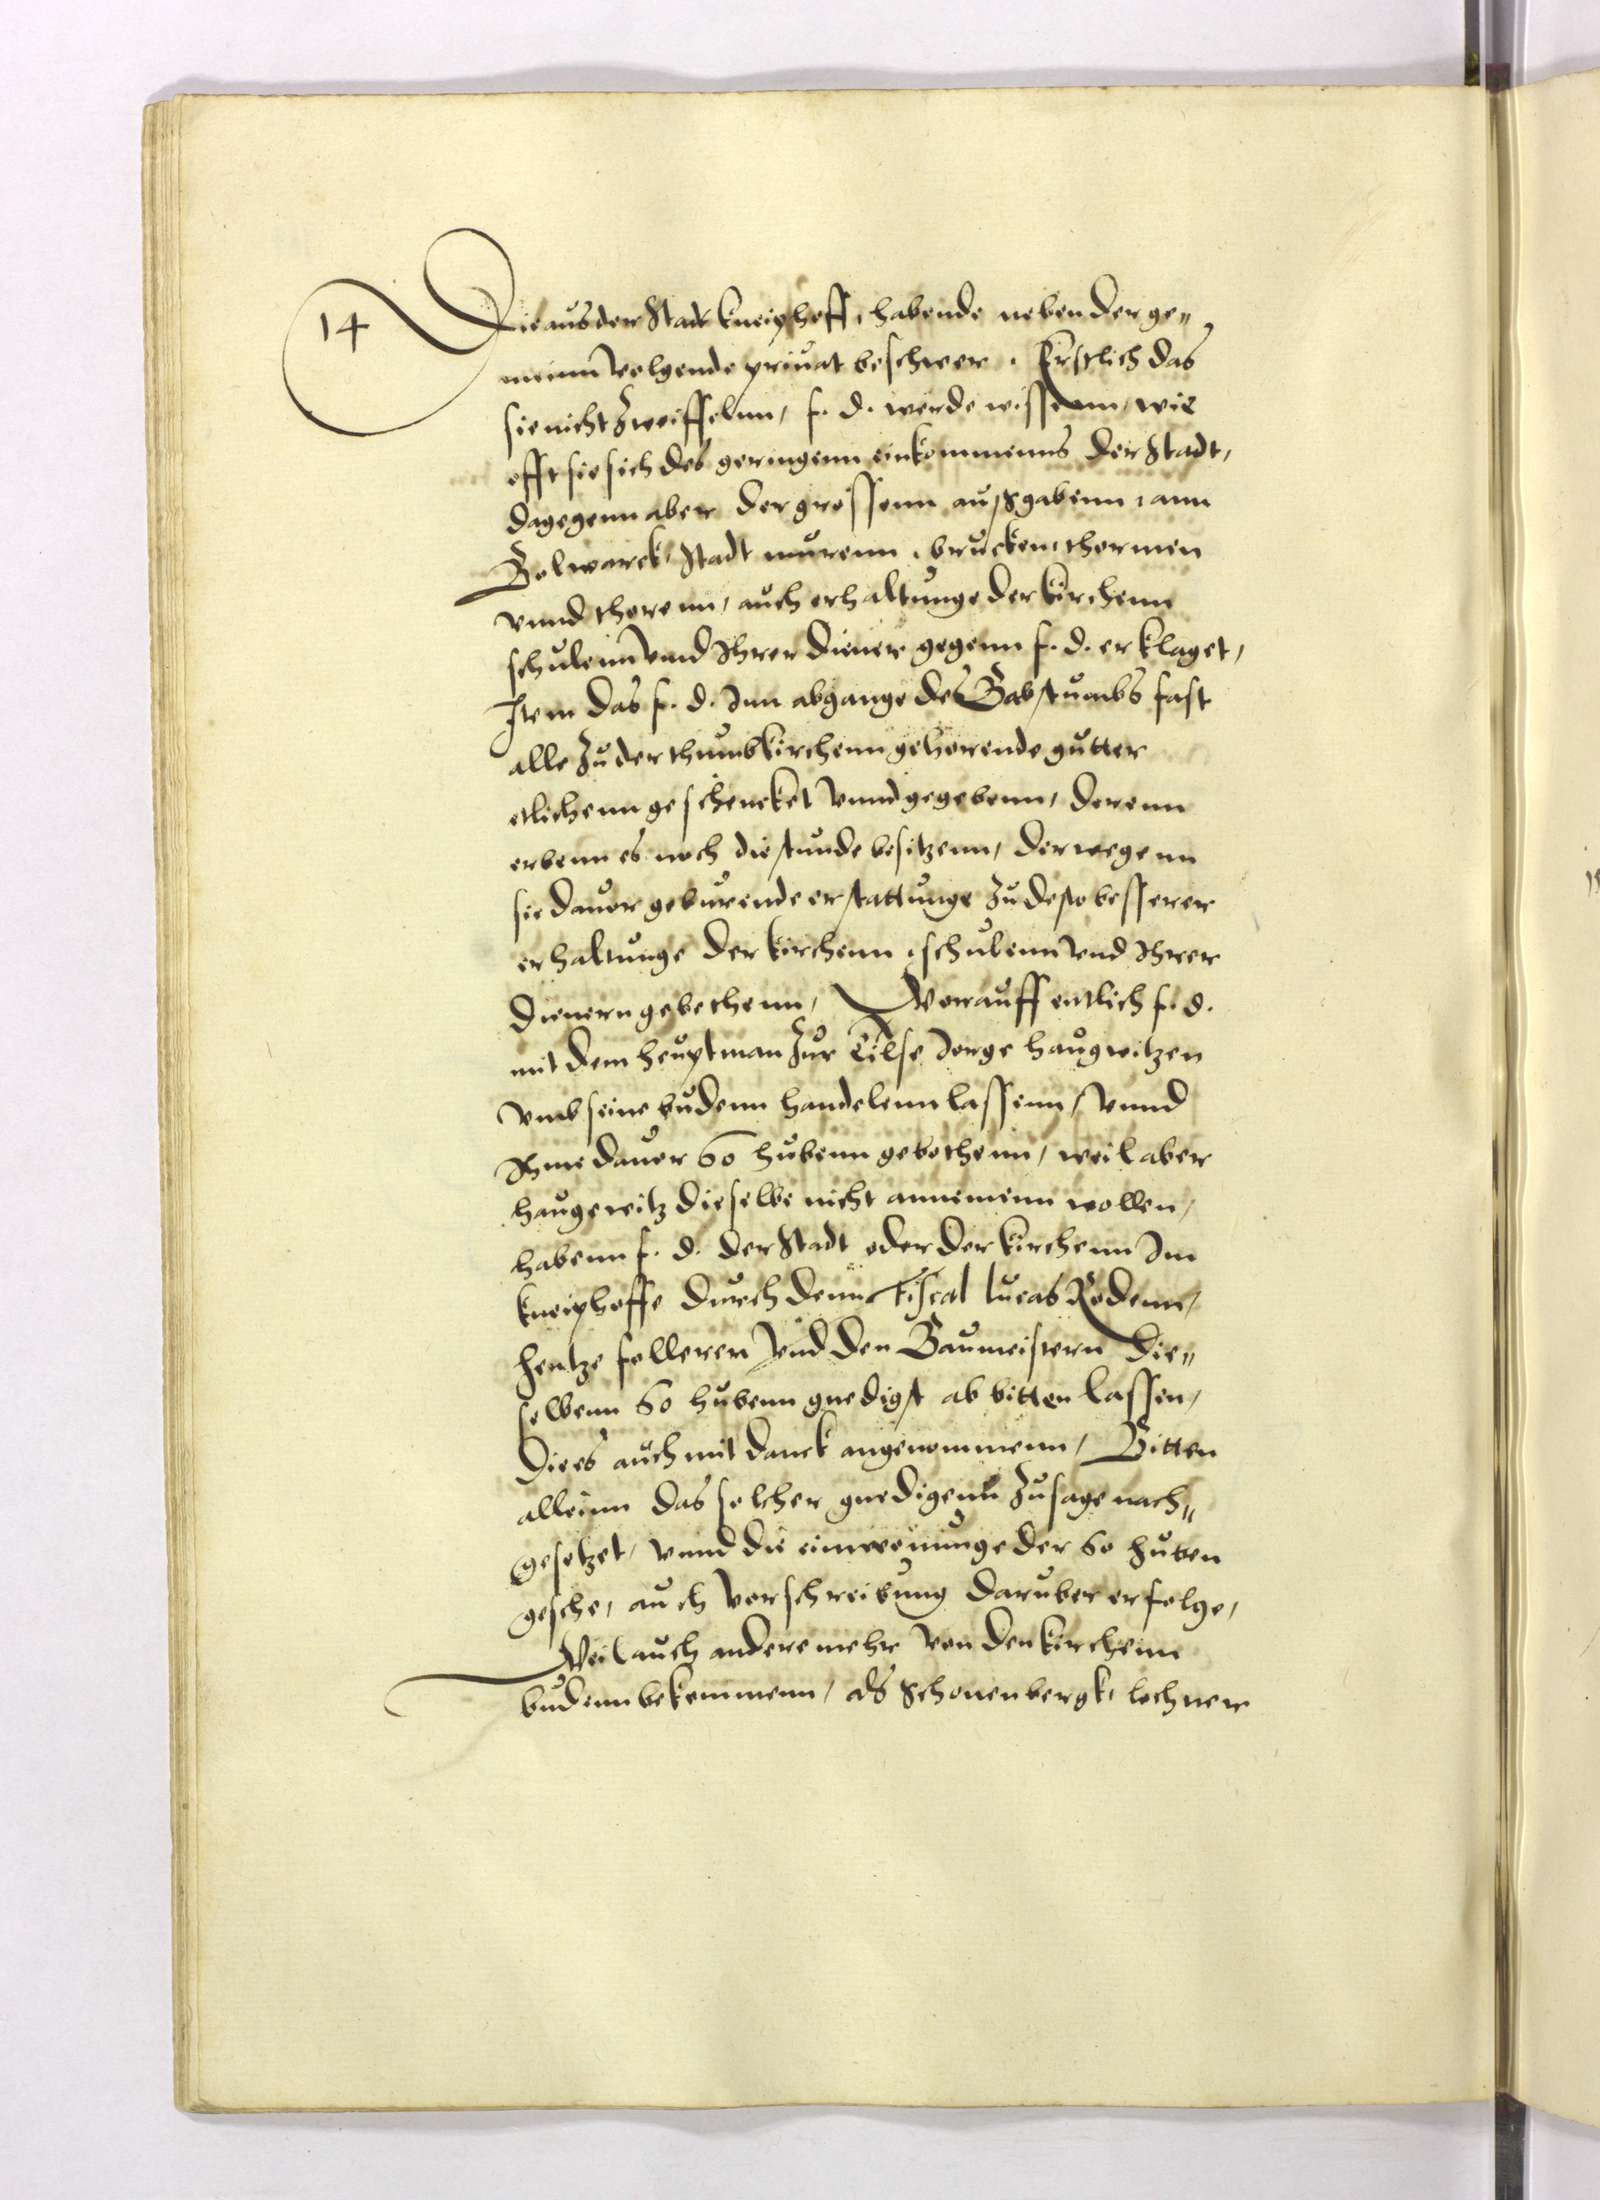 14
Die aus der Stadt kneiphoff, habende neben der ge„
meinn volgende priuat beschwer. Erstlich das
sie nicht Zweiffelnn, f. d. werde wissenn, wie
offt sie sich des geringenn einkommenns der Stadt,
dagegenn aber der grossenn außgabenn, ann
Bolwarck, Stadt murenn, brucken, thormen
vnnd thorenn, auch erhaltunge der kirchenn
schulenn vnnd Ihrer diener gegenn f. d. erklaget,
Item das f. d. Inn abgange des Babstumbs fast
alle Zu der thumbkirchenn gehorende gutter
etlichenn geschencket vnnd gegebenn, derenn
erbenn es noch die stunde besitzenn, derwegenn
sie dauor geburende erstattunge Zu desto besserer
erhaltunge der kirchenn, schulenn vnd Ihrer
dienern gebethenn, Worauff entlich f. d.
mit dem heuptman Zur Tilse Jorge haugwitzen
vmb seine budenn handelenn lassenn, vnnd
Ihme dauor 60 hubenn gebothenn, weil aber
haugewitz dieselbe nicht annemenn wollen,
habenn f. d. der Stadt oder der kirchenn Im
kneiphoffe durch denn Fiscal lucas Rodenn,
hentze fellerer vnd den Baumeistern die„
selbenn 60 hubenn gnedigst ab bitten lassen,
Die es auch mit danck angenommenn, Bitten
alleinn das solcher gnedigenn Zusage nach„
gesetzet, vnnd die einweisunge der 60 huben
geschehe, auch vorschreibung daruber erfolge,
Weil auch andere mehr von den kirchenn
budenn bekommenn, als Schonenbergk, lochner